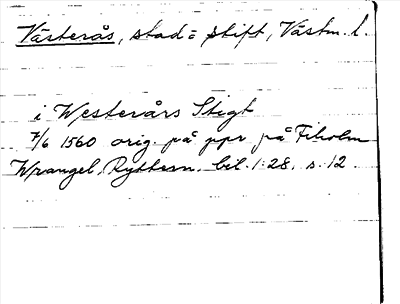 Västerås, stad = stift, Västm. l.
i Westerårs Stigt
7/6 1560 orig. på ppr på Fiholm
Wrangel, Ryttern. bil. 1:28, s. 12.